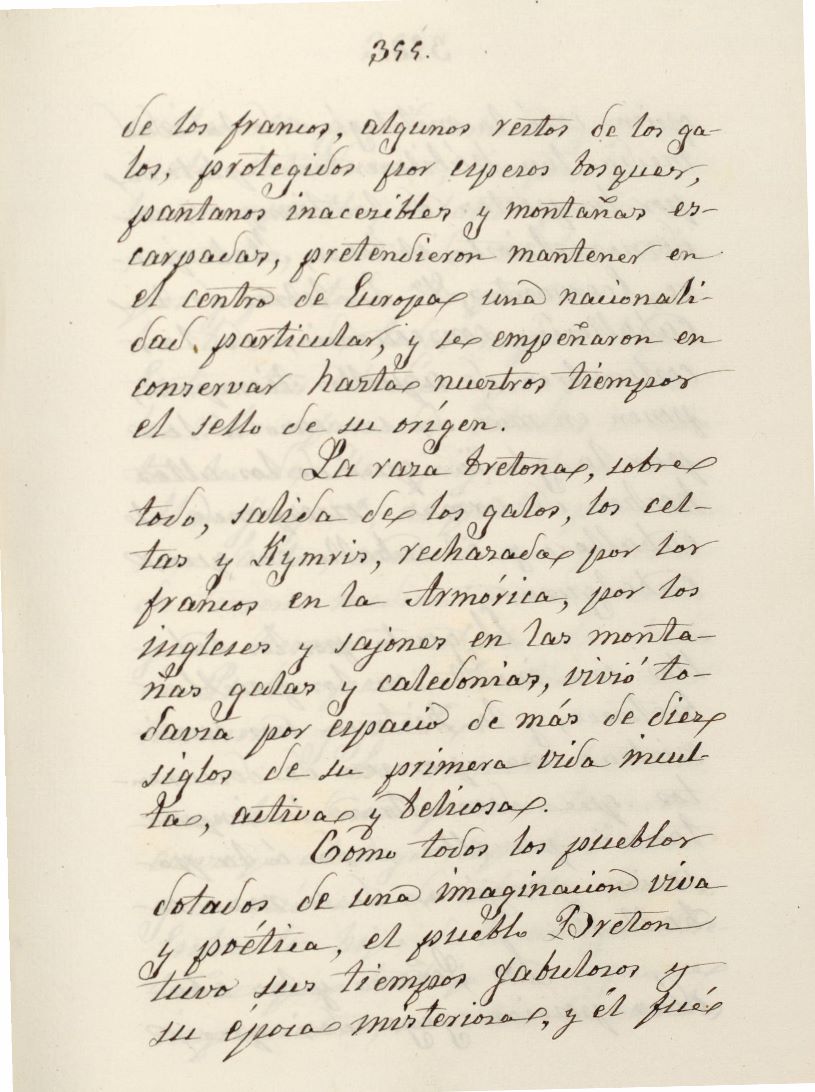 355.
de los francos, algunos restos de los ga-
los, protegidos por espesos bosques,
pantanos inacesibles y montañas es-
carpadas, pretendieron mantener en
el centro de Europa una nacionali-
dad particular, y se empeñaron en
conservar hasta nuestros tiempos
el sello de su orígen.
La raza bretona, sobre
todo, salida de los galos, los cel-
tas y Kymris, rechazada por los
francos en la Armórica, por los
ingleses y sajones en las monta-
ñas galas y caledonias, vivió to-
davía por espacio de más de diez
siglos de su primera vida incul-
ta, activa y belicosa.
Como todos los pueblos
dotados de una imaginacion viva
y poética, el pueblo Breton
tuvo sus tiempos fabulosos y
su época misteriosa, y él fué